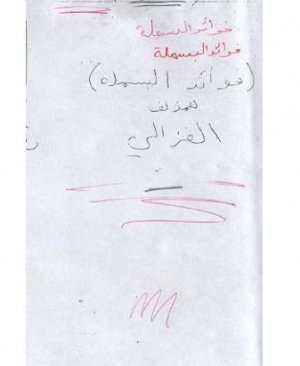 فوائد البسملة
فوائد البسملة
(فوائد البسمله)
للمؤلف
الغزالي